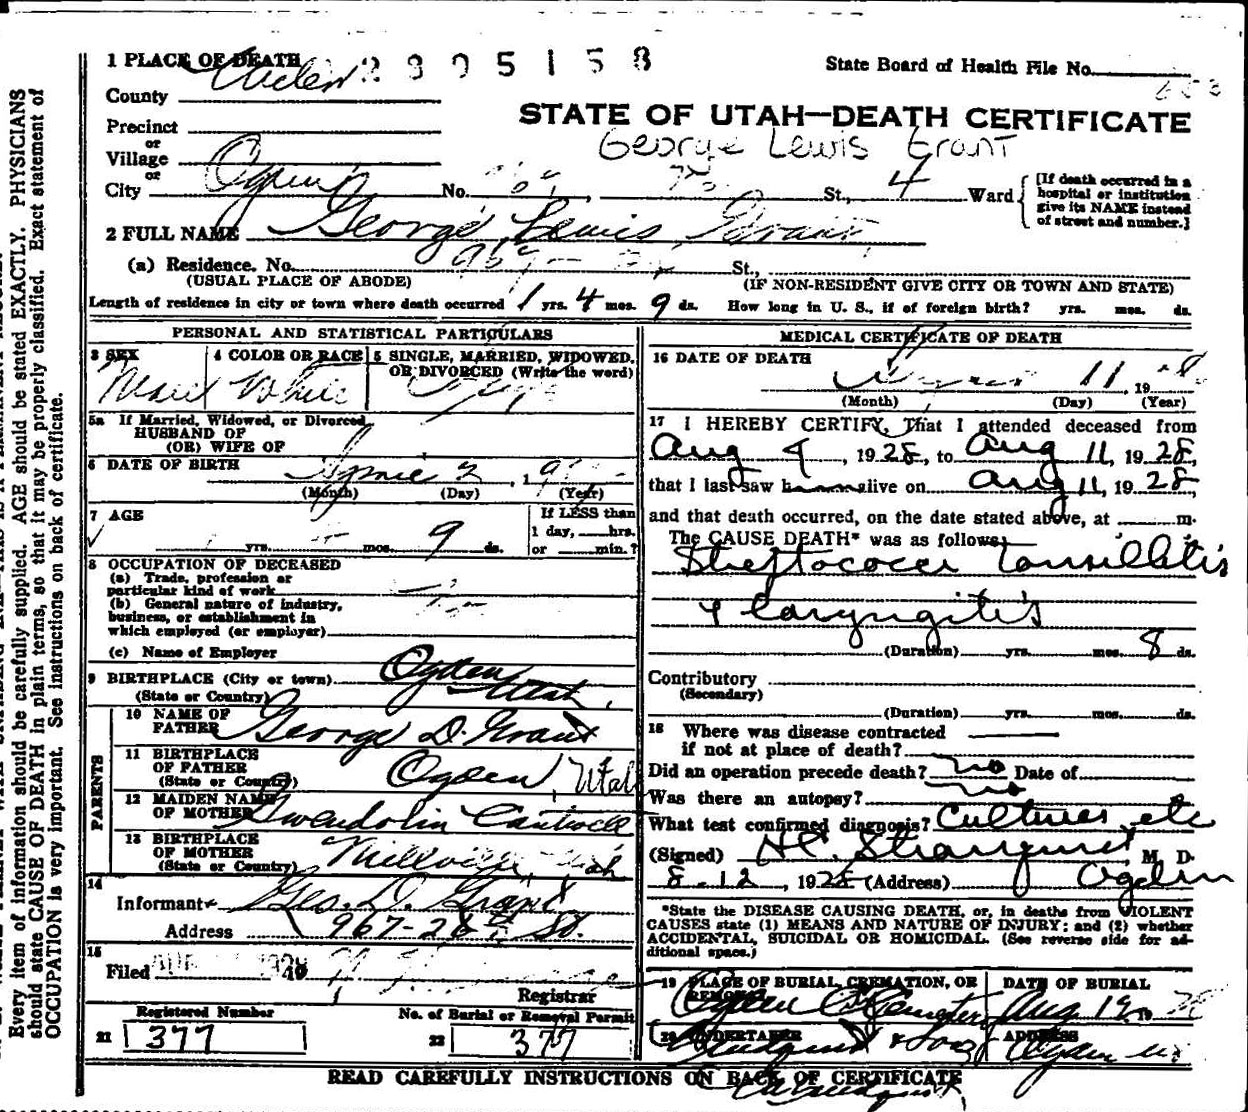 1 PLACE OF DEATH 2895158
State Board of Health File No.
County
STATE OF UTAH—DEATH CERTIFICATE
Precinct
George Lewis Grant
or
Village
or
City Ogden No. St., 4 Ward
[If death occurred in a hospital or institution give its NAME instead of street and number.]
2 FULL NAME George Lewis Grant
(a) Residence. No. 967 St.,
(USUAL PLACE OF ABODE) (IF NON-RESIDENT GIVE CITY OR TOWN AND STATE)
Length of residence in city or town where death occurred 1 yrs. 4 mos. 9 ds. How long in U. S., if of foreign birth? yrs. mos. ds.
PERSONAL AND STATISTICAL PARTICULARS
3 SEX 4 COLOR OR RACE 5 SINGLE, MARRIED, WIDOWED, OR DIVORCED (Write the word)
Male White
5a If Married, Widowed, or Divorced
HUSBAND OF
(OR) WIFE OF
6 DATE OF BIRTH 2, 19
(Month) (Day) (Year)
7 AGE yrs. mos. 9 ds.
If LESS than
1 day, hrs.
or min.?
8 OCCUPATION OF DECEASED
(a) Trade, profession or
particular kind of work
(b) General nature of industry,
business, or establishment in
which employed (or employer)
(c) Name of Employer
9 BIRTHPLACE (City or town) Ogden
(State or Country) Utah
PARENTS
10 NAME OF
FATHER George D. Grant
11 BIRTHPLACE
OF FATHER
(State or Country) Ogden, Utah
12 MAIDEN NAME
OF MOTHER Gwendolin Cantwell
13 BIRTHPLACE
OF MOTHER
(State or Country) Millville, Utah
14
Informant Geo. D. Grant
Address 967-26th St.
15
Filed
Registrar
Registered Number No. of Burial or Removal Permit
21 377 22 377
MEDICAL CERTIFICATE OF DEATH
16 DATE OF DEATH
11, 19
(Month) (Day) (Year)
17 I HEREBY CERTIFY, That I attended deceased from
Aug 4, 1928, to Aug 11, 1928
that I last saw h alive on Aug 11, 1928
and that death occurred, on the date stated above, at m.
The CAUSE DEATH* was as follows:
Streptococci Tonsillitis
& Laryngitis
(Duration) yrs. mos. 8 ds.
Contributory
(Secondary)
(Duration) yrs. mos. ds.
18 Where was disease contracted
if not at place of death?
Did an operation precede death? no Date of
Was there an autopsy? no
What test confirmed diagnosis? Cultures, etc
(Signed) H.C. Stranquist, M D.
8-12, 1928 (Address) Ogden
*State the DISEASE CAUSING DEATH, or, in deaths from VIOLENT
CAUSES state (1) MEANS AND NATURE OF INJURY; and (2) whether
ACCIDENTAL, SUICIDAL OR HOMICIDAL. (See reverse side for ad-
ditional space.)
19 PLACE OF BURIAL, CREMATION, OR REMOVAL DATE OF BURIAL
Ogden C Cemetery Aug 12
20 UNDERTAKER ADDRESS
Lindquist & Sons Ogden
READ CAREFULLY INSTRUCTIONS ON BACK OF CERTIFICATE
Every item of information should be carefully supplied. AGE should be stated EXACTLY. PHYSICIANS
should state CAUSE OF DEATH in plain terms, so that it may be properly classified. Exact statement of
OCCUPATION is very important. See instructions on back of certificate.